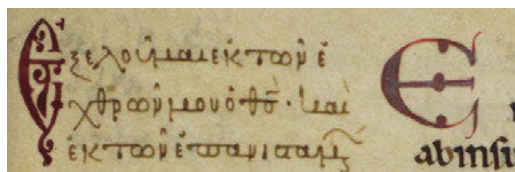 Ἐξελοῦμαιεκτῶνἐ
χθρῶνμουὁθς̅· καὶ
ἐκτῶνἐπανισταμ
E
abinsu